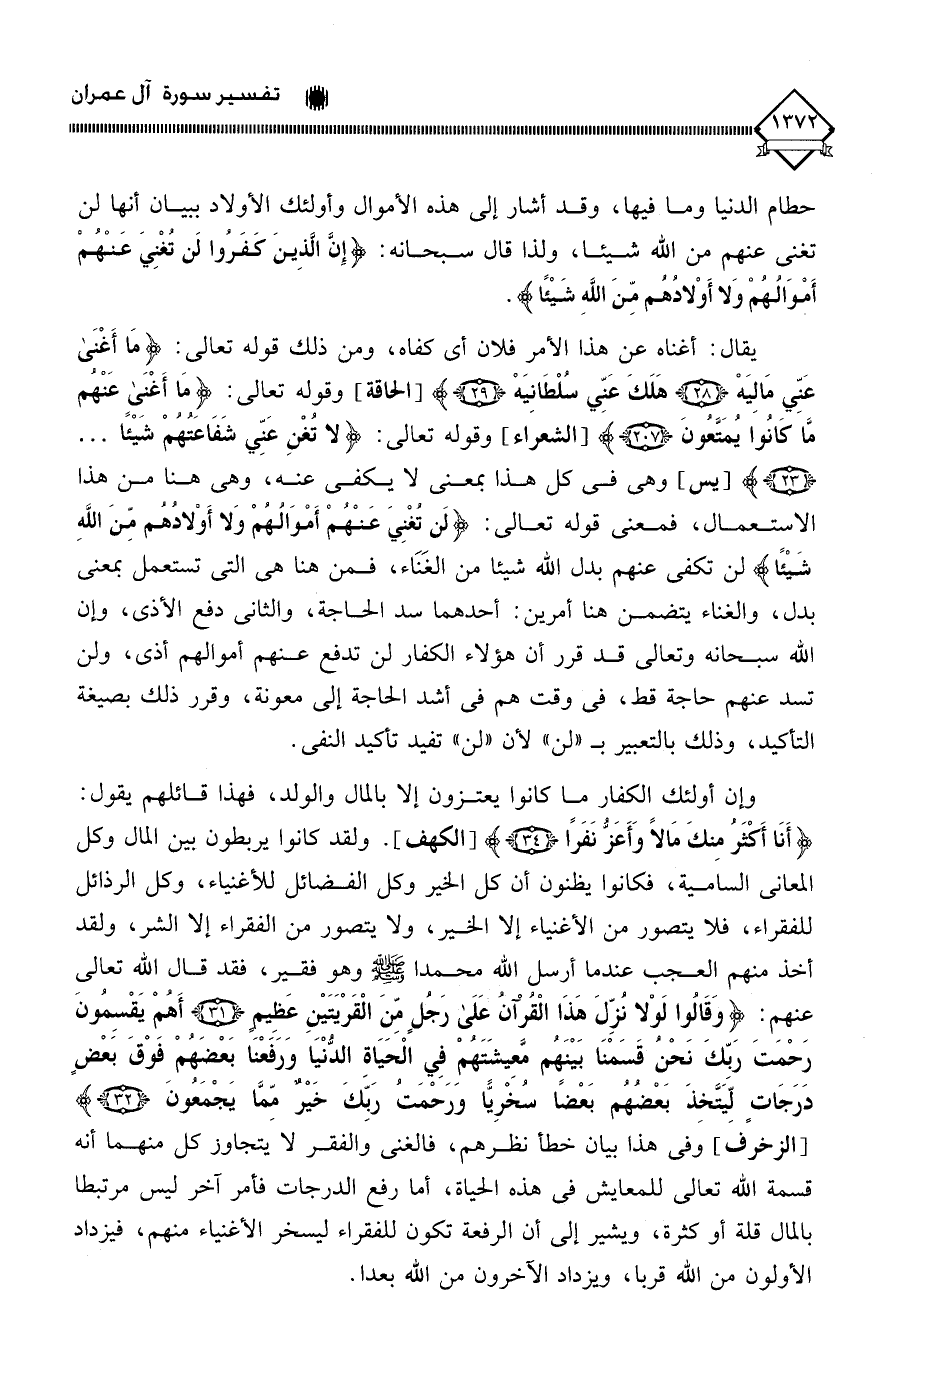 تفسير سورة آل عمران
١٣٧٢
حطام الدنيا وما فيها، وقد أشار إلى هذه الأموال وأولئك الأولاد ببيان أنها لن
تغنى عنهم من الله شيئا، ولذا قال سبحانه: ﴿إِنَّ الَّذِينَ كَفَرُوا لَن تُغْنِيَ عَنْهُمْ
أَمْوَالُهُمْ وَلا أَوْلادُهُم مِّنَ اللَّهِ شَيْئًا﴾.
يقال: أغناه عن هذا الأمر فلان أى كفاه، ومن ذلك قوله تعالى: ﴿مَا أَغْنَىٰ
عَنِّي مَالِيَهْ ﴿٢٨﴾ هَلَكَ عَنِّي سُلْطَانِيَهْ ﴿٢٩﴾﴾ [الحاقة] وقوله تعالى: ﴿مَا أَغْنَىٰ عَنْهُم
مَّا كَانُوا يُمَتَّعُونَ ﴿٢٠٧﴾﴾ [الشعراء] وقوله تعالى: ﴿لا تُغْنِ عَنِّي شَفَاعَتُهُمْ شَيْئًا ...
﴿٢٣﴾﴾ [يس] وهى فى كل هذا بمعنى لا يكفى عنه، وهى هنا من هذا
الاستعمال، فمعنى قوله تعالى: ﴿لَن تُغْنِيَ عَنْهُمْ أَمْوَالُهُمْ وَلا أَوْلادُهُم مِّنَ اللَّهِ
شَيْئًا﴾ لن تكفى عنهم بدل الله شيئا من الغَنَاء، فمن هنا هى التى تستعمل بمعنى
بدل، والغناء يتضمن هنا أمرين: أحدهما سد الحاجة، والثانى دفع الأذى، وإن
الله سبحانه وتعالى قد قرر أن هؤلاء الكفار لن تدفع عنهم أموالهم أذى، ولن
تسد عنهم حاجة قط، فى وقت هم فى أشد الحاجة إلى معونة، وقرر ذلك بصيغة
التأكيد، وذلك بالتعبير بـ «لن» لأن «لن» تفيد تأكيد النفى.
وإن أولئك الكفار ما كانوا يعتزون إلا بالمال والولد، فهذا قائلهم يقول:
﴿أَنَا أَكْثَرُ مِنكَ مَالاً وَأَعَزُّ نَفَرًا ﴿٣٤﴾﴾ [الكهف]. ولقد كانوا يربطون بين المال وكل
المعانى السامية، فكانوا يظنون أن كل الخير وكل الفضائل للأغنياء، وكل الرذائل
للفقراء، فلا يتصور من الأغنياء إلا الخير، ولا يتصور من الفقراء إلا الشر، ولقد
أخذ منهم العجب عندما أرسل الله محمدا ﷺ وهو فقير، فقد قال الله تعالى
عنهم: ﴿وَقَالُوا لَوْلا نُزِّلَ هَذَا الْقُرْآنُ عَلَىٰ رَجُلٍ مِّنَ الْقَرْيَتَيْنِ عَظِيمٍ ﴿٣١﴾ أَهُمْ يَقْسِمُونَ
رَحْمَتَ رَبِّكَ نَحْنُ قَسَمْنَا بَيْنَهُم مَّعِيشَتَهُمْ فِي الْحَيَاةِ الدُّنْيَا وَرَفَعْنَا بَعْضَهُمْ فَوْقَ بَعْضٍ
دَرَجَاتٍ لِّيَتَّخِذَ بَعْضُهُم بَعْضًا سُخْرِيًّا وَرَحْمَتُ رَبِّكَ خَيْرٌ مِّمَّا يَجْمَعُونَ ﴿٣٢﴾﴾
[الزخرف] وفى هذا بيان خطأ نظرهم، فالغنى والفقر لا يتجاوز كل منهما أنه
قسمة الله تعالى للمعايش فى هذه الحياة، أما رفع الدرجات فأمر آخر ليس مرتبطا
بالمال قلة أو كثرة، ويشير إلى أن الرفعة تكون للفقراء ليسخر الأغنياء منهم، فيزداد
الأولون من الله قربا، ويزداد الآخرون من الله بعدا.